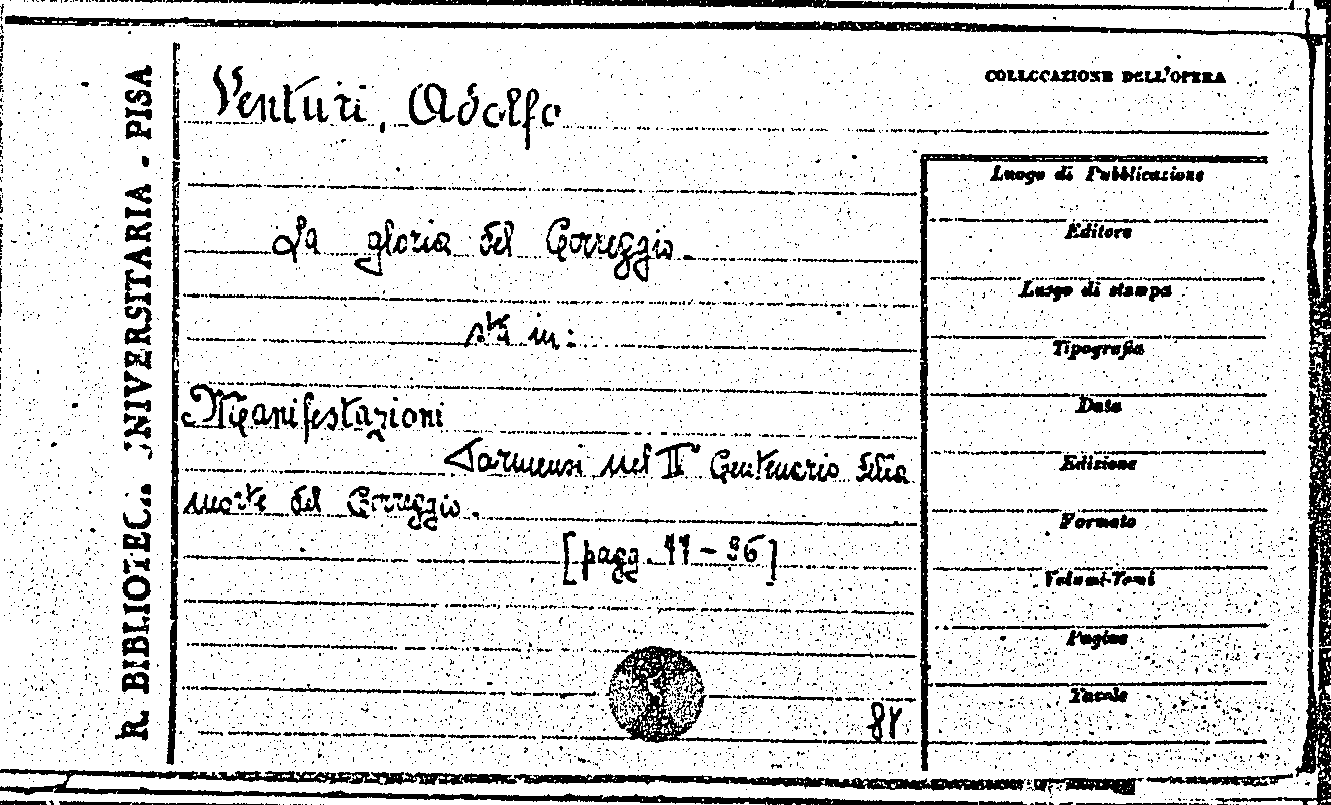 R. BIBLIOTECA UNIVERSITARIA - PISA
COLLOCAZIONE DELL'OPERA
Venturi, Adolfo
La gloria del Correggio.
sta in:
Manifestazioni
Parmensi nel II° Centenario della
morte del Correggio.
[pagg.
Luogo di Pubblicazione
Editore
Luogo di stampa
Tipografia
Data
Edizione
Formato
Volumi-Tomi
Pagine
Tavole